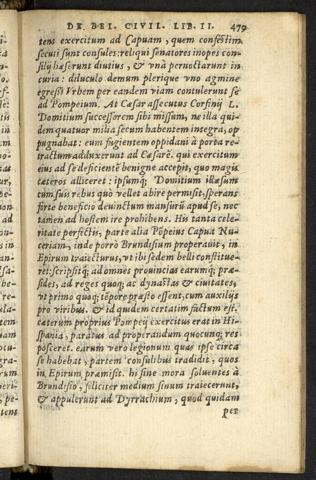 DE BEL. CIVIL. LIB. II. 479
tens exercitum ad Capuam, quem confestim
secuti sunt consules: reliqui senatores inopes con-
silij hæserunt diutius, & unà pernoctarunt in
curia: diluculo demum plerique uno agmine
egressi Vrbem per eandem viam contulerunt se
ad Pompeium. At Cæsar assecutus Corfinij L.
Domitium successorem sibi missum, ne illa qui-
dem quatuor milia secum habentem integra, op
pugnabat: eum fugientem oppidani à porta re-
tractum adduxerunt ad Cæsarē. qui exercitum
eius ad se deficientē benigne accepit, quo magis
cæteros alliceret: ipsumq; Domitium illæsum
cum suis rebus quò vellet abire permisit, sperans
forte beneficio deuinctum mansurū apud se, nec
tamen ad hostem ire prohibens. His tanta cele-
ritate perfectis, parte alia Pōpeius Capua Nu-
ceriam, inde porrò Brundisium properauit, in
Epirum traiecturus, vt ibi sedem belli constitue-
ret: scripsitq; ad omnes prouincias earumq; præ-
sides, ad reges quoq; ac dynastas & ciuitates,
vt primo quoq; tēpore præsto essent, cum auxilijs
pro viribus. & id quidem certatim factum est.
cæterum proprius Pompeij exercitus erat in Hi-
spania, paratus ad properandum quocunq; res
posceret. earum vero legionum quas ipse circa
se habebat, partem consulibus tradidit, quos
in Epirum præmisit. hi sine mora soluentes à
Brundisio, feliciter medium sinum traiecerunt,
& appulerunt ad Dyrrachium, quod quidam
per